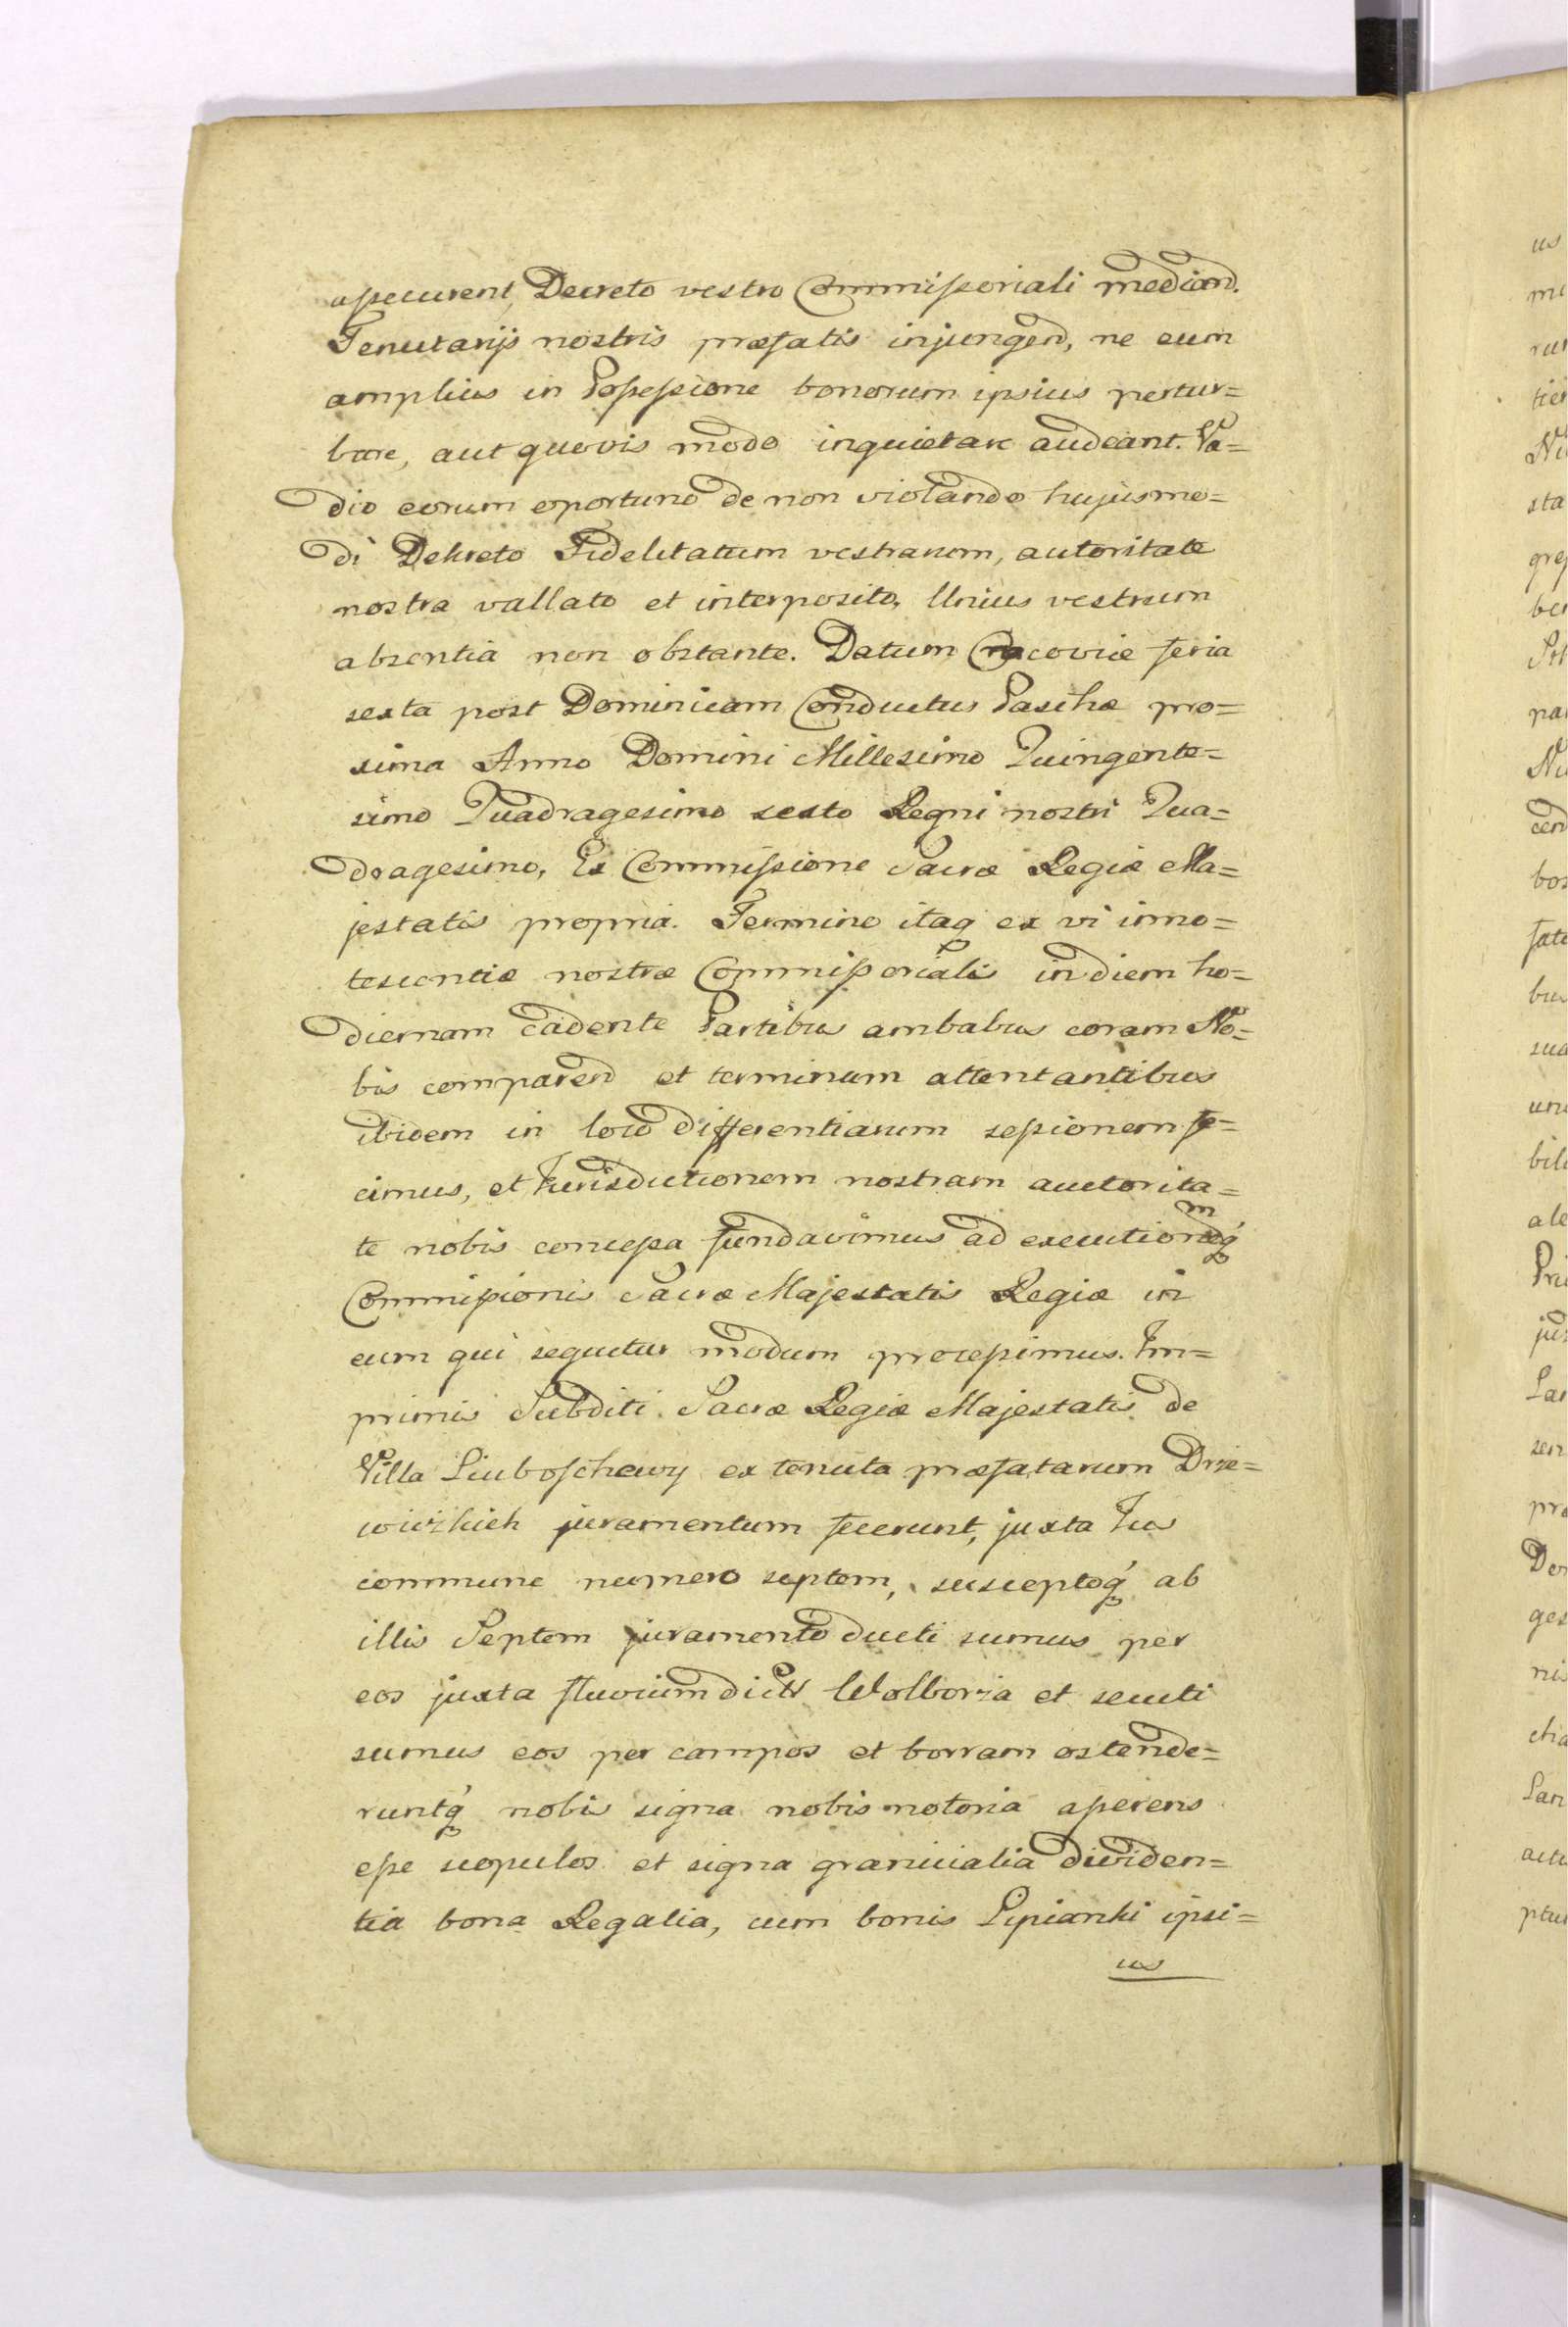 assecurent, Decreto vestro Commissoriali mediand.
Tenutarijs nostris præfatis injungend, ne eum
amplius in Possessione bonorum ipsius pertur=
bare, aut quovis modo inquietare audeant. Va=
dio eorum oportuno de non violando hujusmo=
di Dekreto Fidelitatum vestrarum, autoritate
nostra vallato et interposito, Unius vestrum
absentia non obstante. Datum Cracoviæ feria
sexta post Dominicam Conductus Paschæ pro=
xima Anno Domini Millesimo Quingente=
simo Quadragesimo sexto Regni nostri Qua=
dragesimo, Ex Commissione Sacræ Regiæ Ma=
jestatis propria. Termino itaq ex vi inno=
tescentiæ nostræ Commissoriali in diem ho=
diernam cadente Partibus ambabus coram No=
bis comparend et terminum attentantibus
ibidem in loco differentiarum sessionem fe=
cimus, et Jurisdictionem nostram auctorita=
te nobis concessa fundavimus ad executionemq
Commissionis Sacræ Majestatis Regiæ in
eum qui sequetur modum processimus. Im=
primis Subditi Sacræ Regiæ Majestatis de
Villa Liuboschewy ex tenuta præfatarum Drze=
wiczkich juramentum fecerunt, juxta Jus
commune numero septem, susceptoq ab
illis Septem juramento ducti sumus per
eos juxta fluvium dict Wolborza et secuti
sumus eos per campos et borram ostende=
runtq nobis signa nobis notoria asserens
esse scopulos et signa granicialia dividen=
tia bona Regalia, cum bonis Lipianki ipsi=
us
us